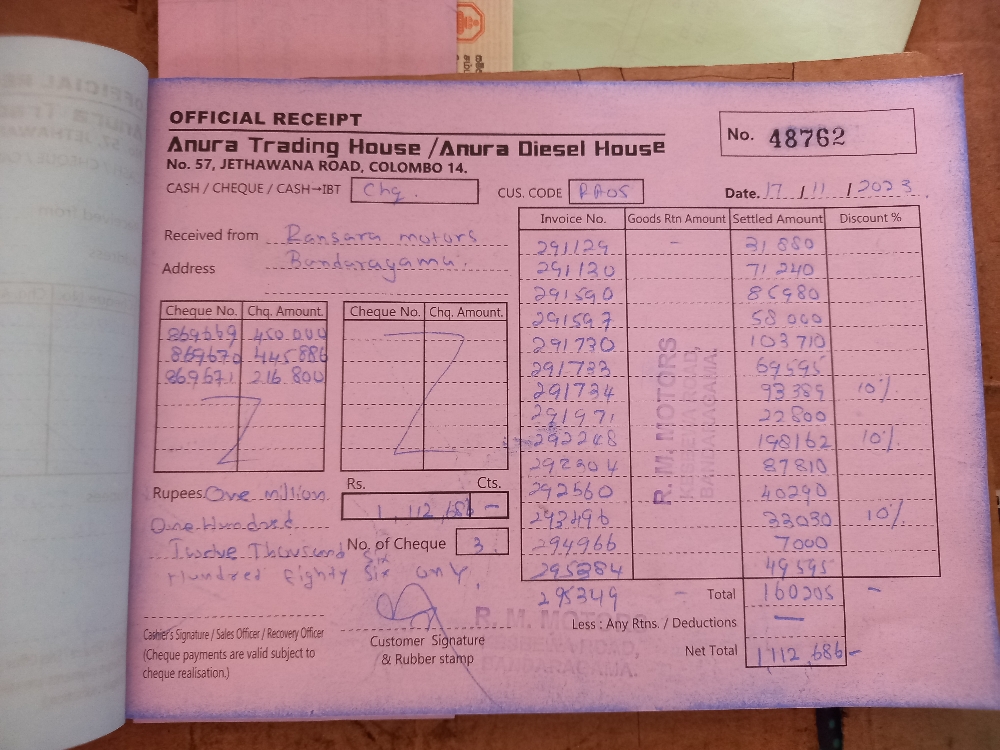 OFFICIAL RECEIPT
Anura Trading House /Anura Diesel House
No. 57, JETHAWANA ROAD, COLOMBO 14.
No. 48762
CASH / CHEQUE / CASH→IBT Chq.
CUS. CODE RA05
Date. 17 / 11 / 2023
Received from Ransara motors
Address Bandaragama.
Cheque No. Chq. Amount.
869669 450 000
869670 445 886
869671 216 800
Cheque No. Chq. Amount.
Invoice No. Goods Rtn Amount Settled Amount Discount %
291129 - 31 880
291130 71 240
291590 86980
291597 58 000
291730 103 710
291733 69595
291734 93 389 10%
291971 22 800
292248 198162 10%
292304 87810
292560 40290
293496 33030 10%
294966 7000
295384 49595
295349 - Total 160205 -
Less : Any Rtns. / Deductions —
Net Total 1112,686-
Rupees One million
One Hundred
Twelve Thousand Six
Hundred Eighty Six only.
Rs. Cts.
1,112,686 -
No. of Cheque 3
Cashier's Signature / Sales Officer / Recovery Officer
(Cheque payments are valid subject to
cheque realisation.)
Customer Signature
& Rubber stamp
R. M. MOTORS
BANDARAGAMA.
R. M. MOTORS
BANDARAGAMA.